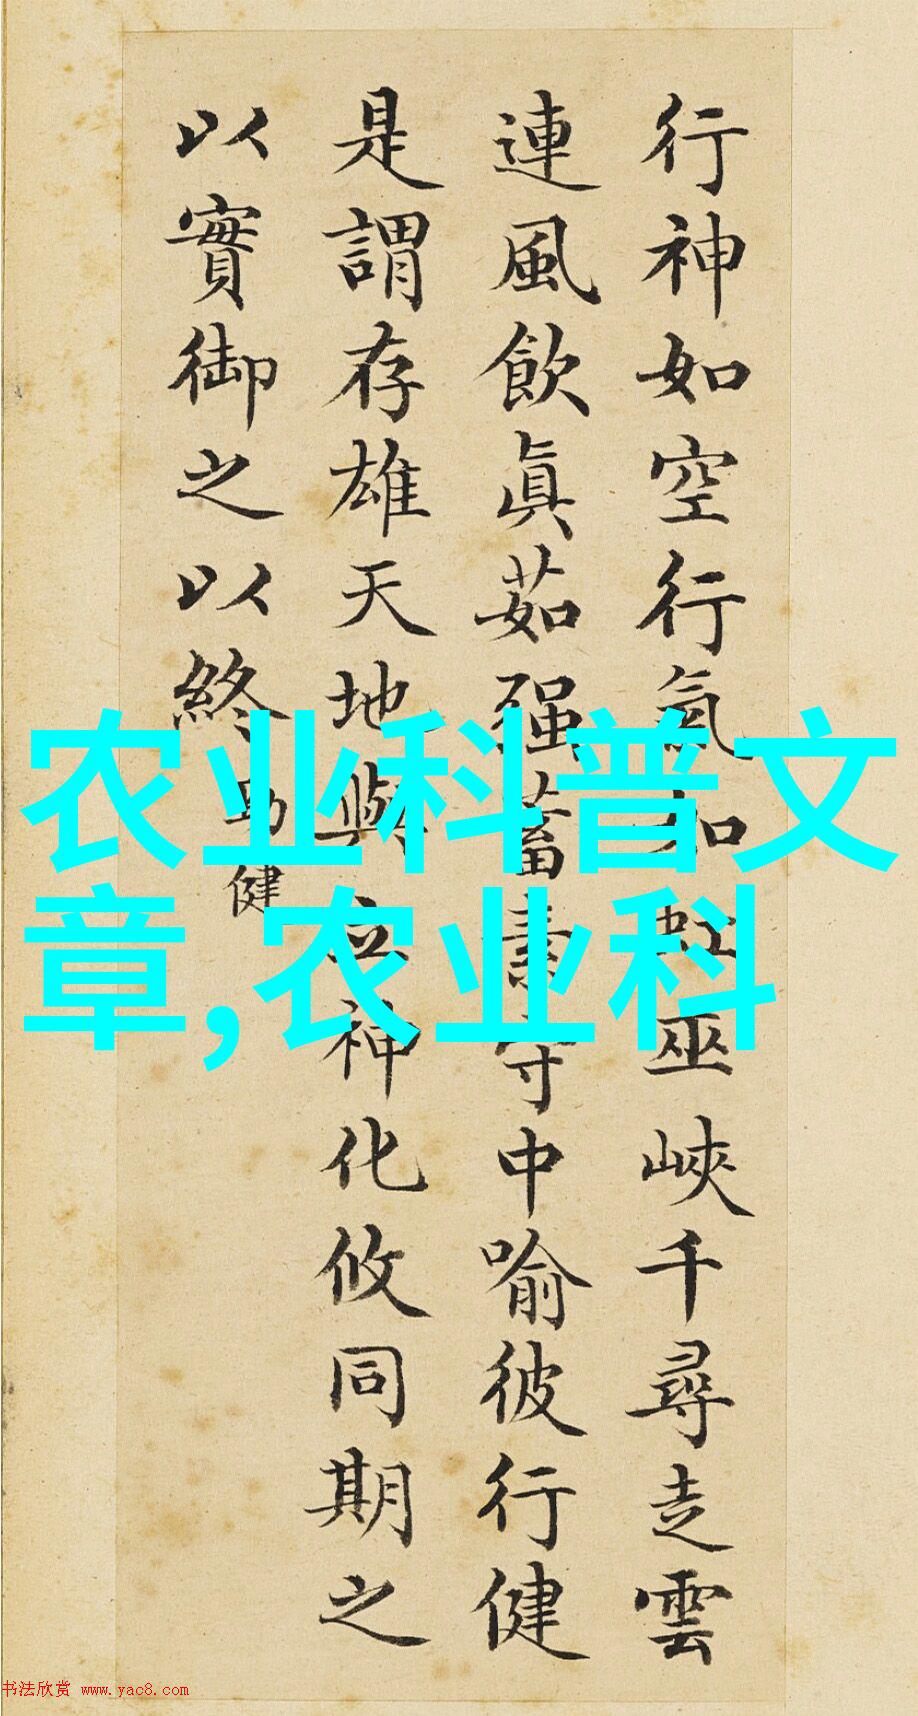 行神如空行氣如虹巫峽千尋走雲
連風飲眞茹强蓄素守中喻彼行健
是謂存雄天地與立神化攸同期之
以實御之以終 勁健
农业科普文
章,农业科
书法欣赏 www.yac8.com